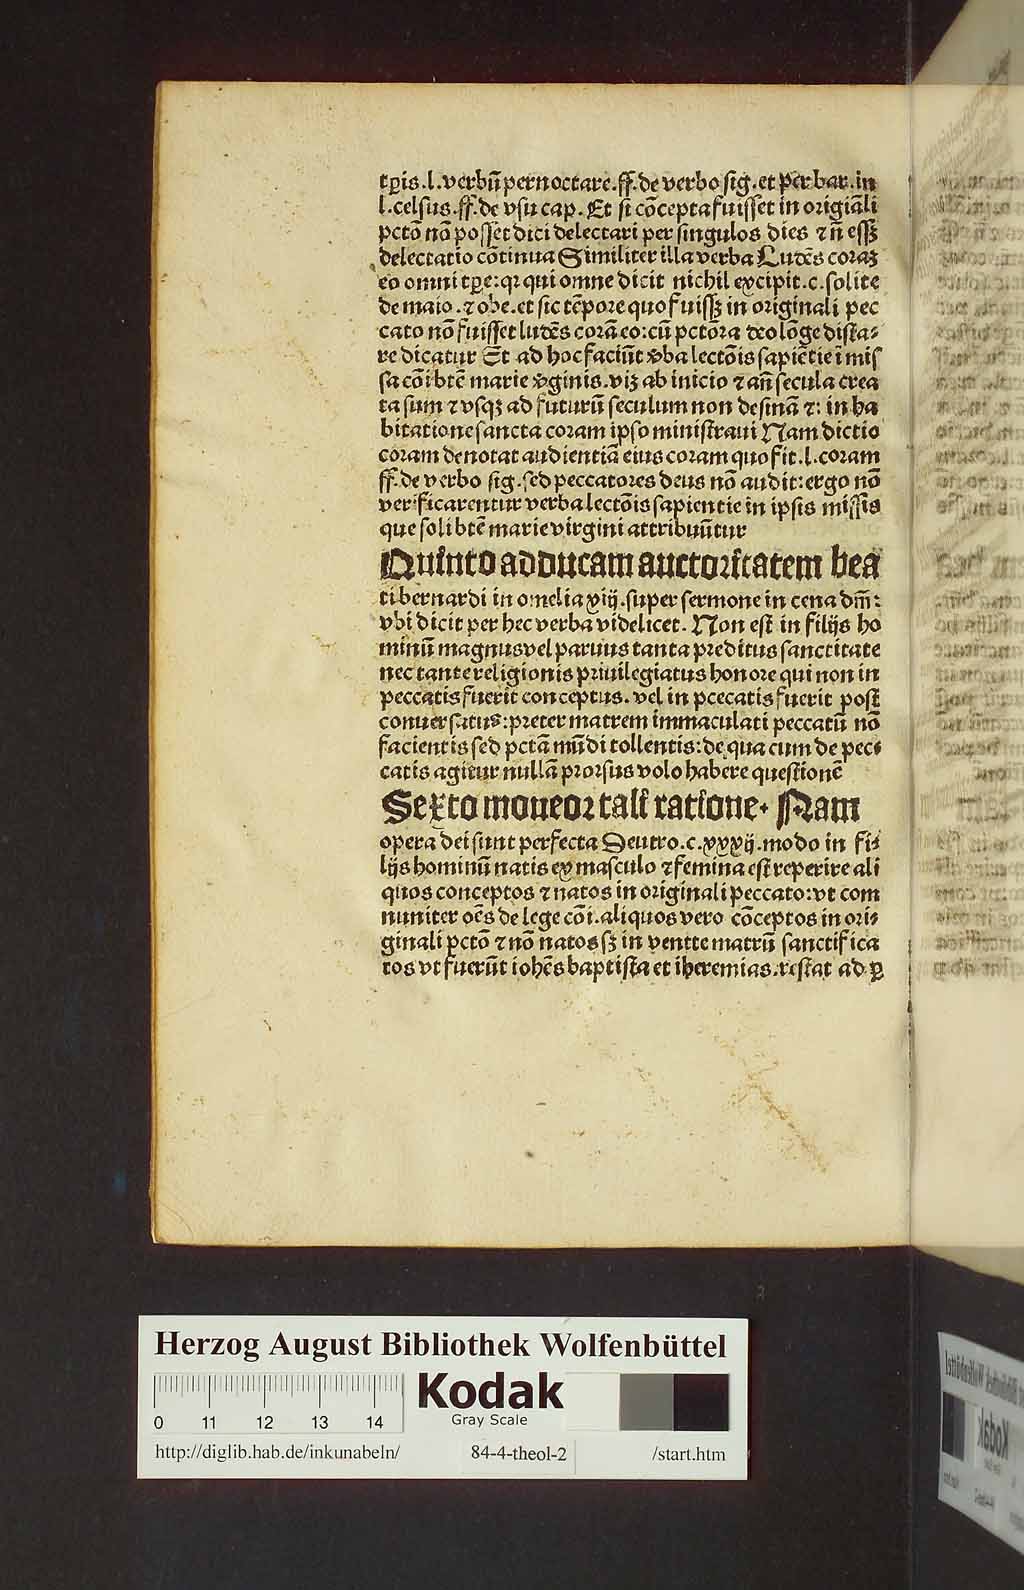 tꝑis.l.verbū pernoctare.ff.de verbo sig.et per bar.in
l.celsus.ff.de vsu cap. Et si cōcepta fuisset in origīali
pctō nō posset dici delectari per singulos dies ⁊ n̄ essꝫ
delectatio cōtinua Similiter illa verba Ludēs coraꝫ
eo omni tꝑe: qꝛ qui omne dicit nichil excipit.c.solite
de maio.⁊ obe.et sic tēpore quo fuissꝫ in originali pec
cato nō fuisset ludēs corā eo: cū pctōra deo lōge dista⸗
re dicatur Et ad hoc faciūt ꝟba lectōis sapiētie ī mis
sa cōi btē marie ꝟginis.viꝫ ab inicio ⁊ an̄ secula crea
ta sum ⁊ vsqꝫ ad futurū seculum non desinā ⁊: in ha
bitatione sancta coram ipso ministraui Nam dictio
coram denotat audientiā eius coram quo fit.l.coram
ff.de verbo sig.sed peccatores deus nō audit: ergo nō
verificarentur verba lectōis sapientie in ipsis missis
que soli btē marie virgini attribuūtur
Quinto adducam auctoritatem bea
ti bernardi in omelia xiij.super sermone in cena dm̄:
vbi dicit per hec verba videlicet. Non est in filijs ho
minū magnus vel paruus tanta preditus sanctitate
nec tante religionis priuilegiatus honore qui non in
peccatis fuerit conceptus. vel in pcecatis fuerit post
conuersatus: preter matrem immaculati peccatū nō
facientis sed pctā mūdi tollentis: de qua cum de pec⸗
catis agitur nullā prorsus volo habere questionē
Sexto moueor tali ratione. Nam
opera dei sunt perfecta Deutro.c.xxxij.modo in fi⸗
lijs hominū natis ex masculo ⁊ femina est reperire ali
quos conceptos ⁊ natos in originali peccato: vt com
nuniter oēs de lege cōi.aliquos vero cōceptos in ori⸗
ginali pctō ⁊ nō natos sꝫ in ventte matrū sanctifica
tos vt fuerūt iohēs baptista et iheremias.restat ad ꝑ
Herzog August Bibliothek Wolfenbüttel
Kodak
Gray Scale
0 11 12 13 14
http://diglib.hab.de/inkunabeln/ 84-4-theol-2 /start.htm